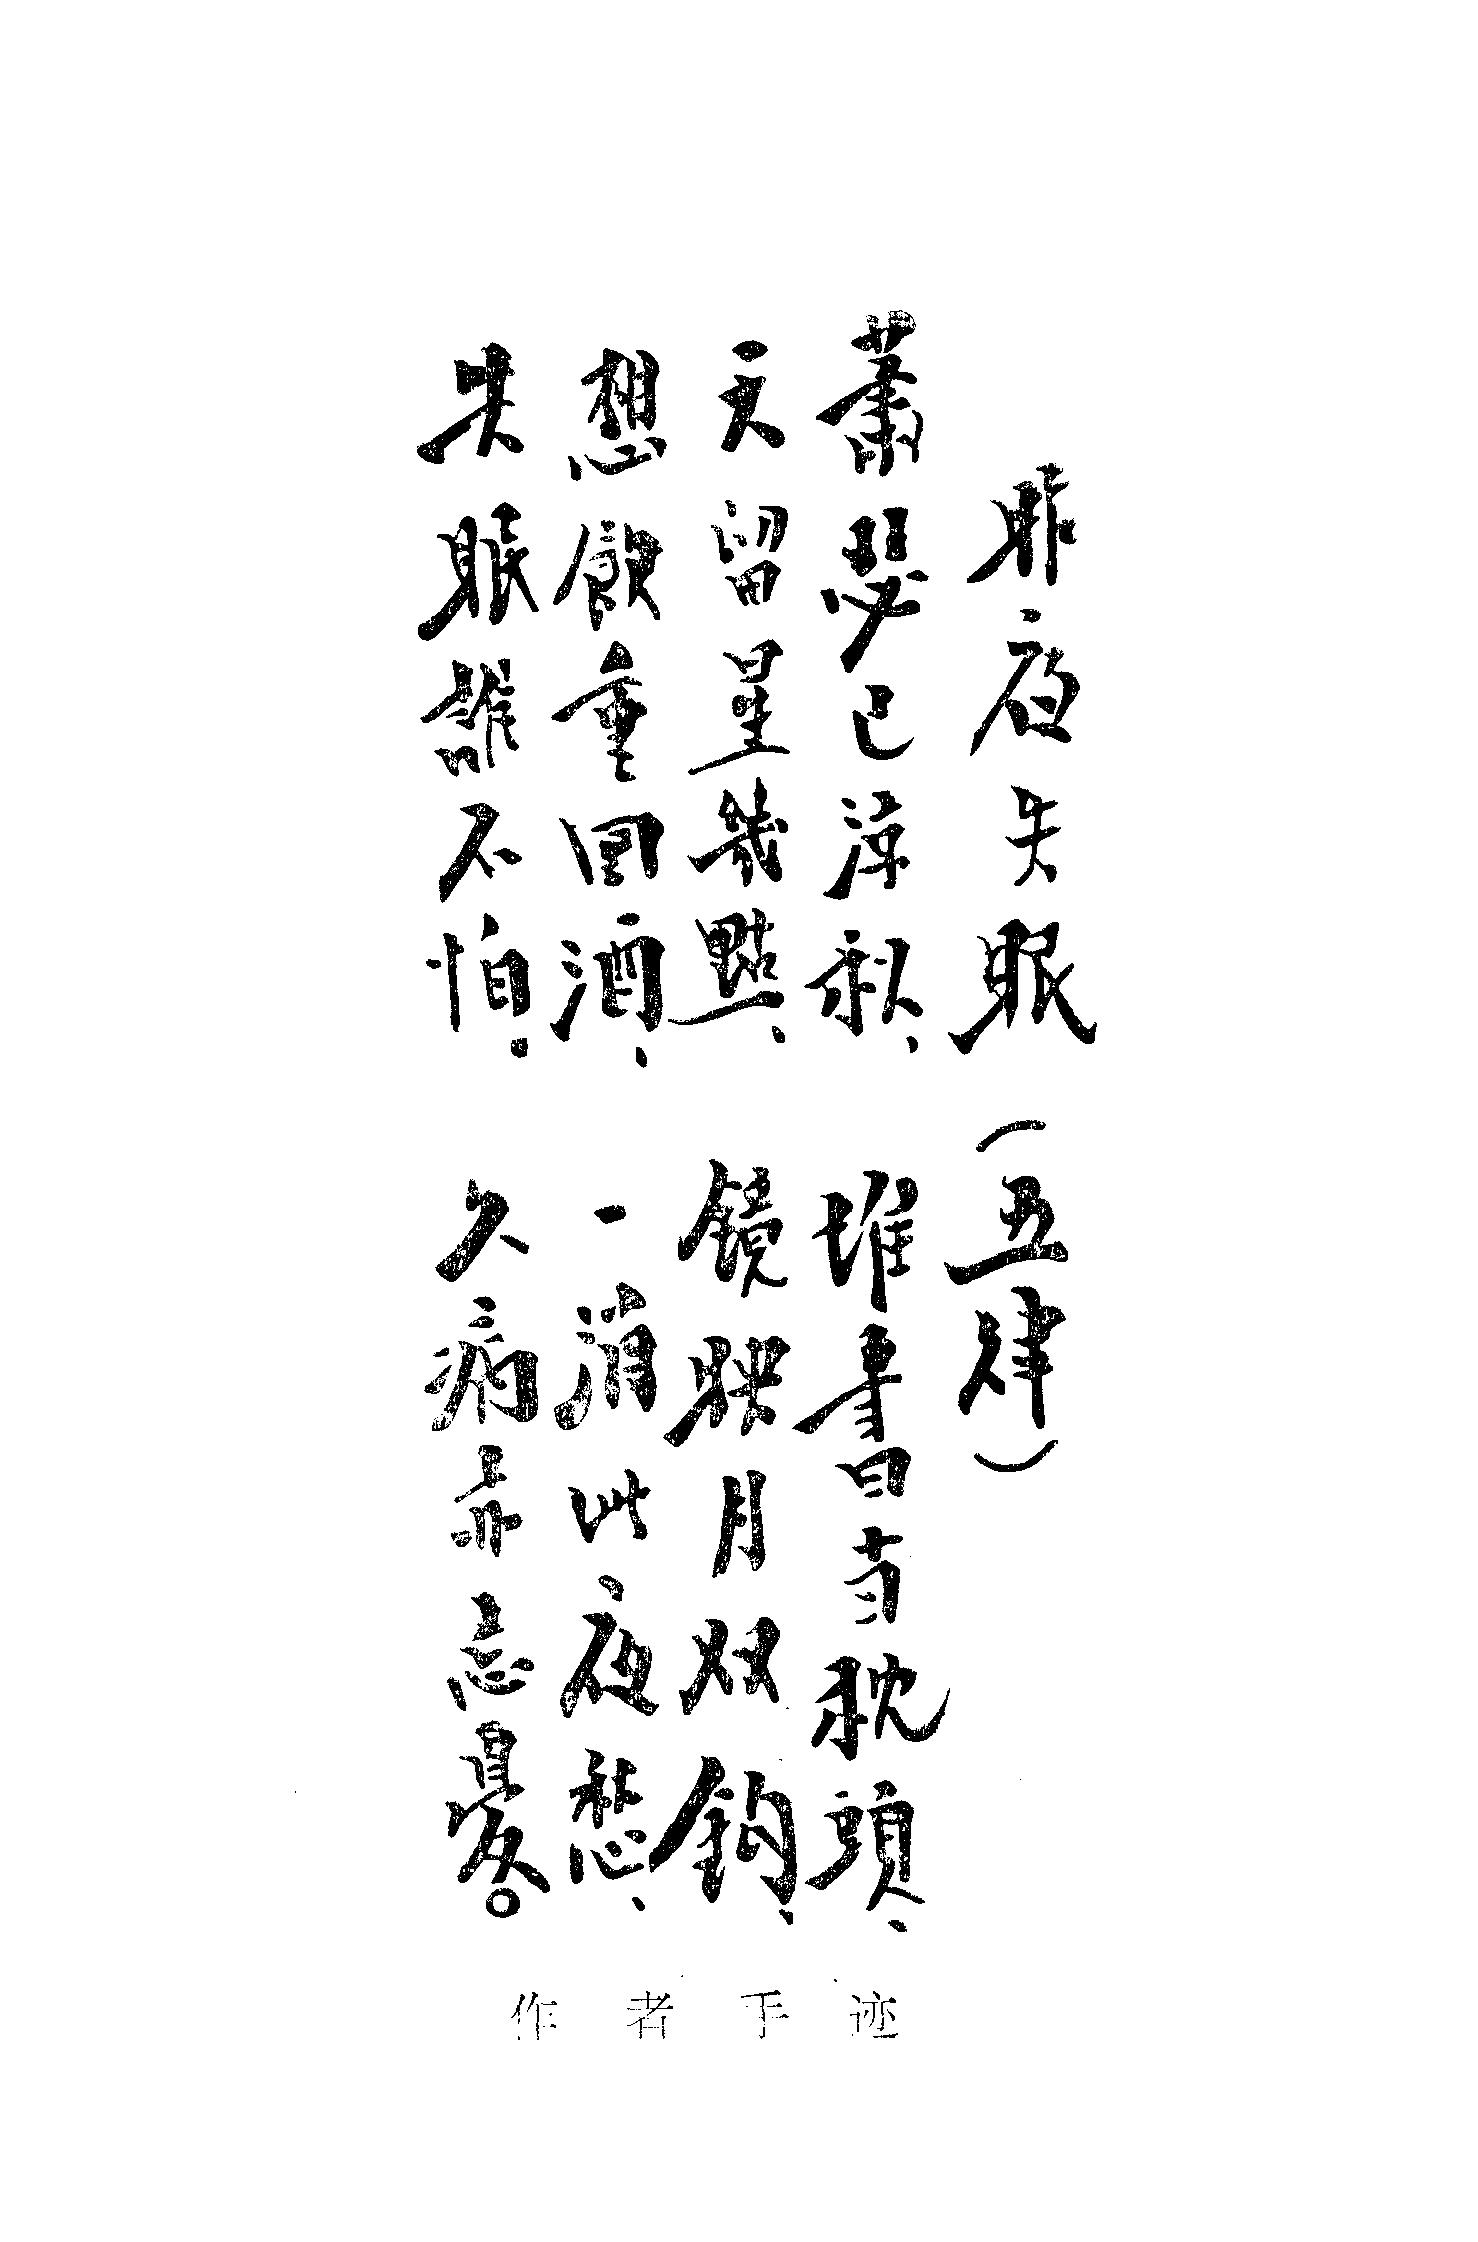 昨夜失眠（五律）
蕭瑟已涼秋、堆書當枕頭、
天留星幾點、鏡映月如鈎、
想飲重回酒、一消此夜愁、
失眠誰不怕。久病亦忘憂。
作者手迹